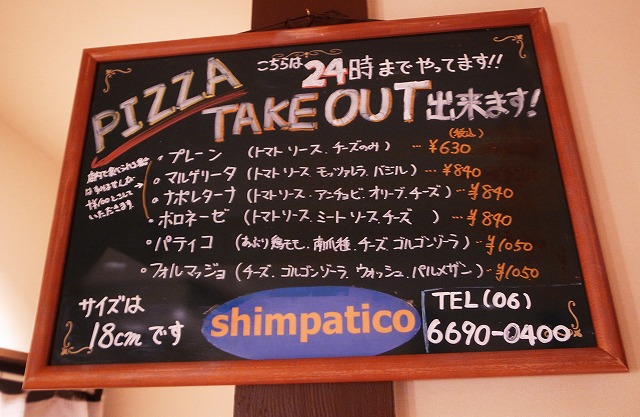 PIZZA
こちらは24時までやってます!!
TAKE OUT 出来ます!
(税込)
・プレーン (トマトソース、チーズのみ) … ¥630
・マルゲリータ (トマトソース、モッツァレラ、バジル) … ¥840
・ナポレターナ (トマトソース、アンチョビ、オリーブ、チーズ) … ¥840
・ボロネーゼ (トマトソース、ミートソース チーズ ) … ¥840
・パティコ (あぶり鶏モモ、南瓜種、チーズ、ゴルゴンゾーラ) … ¥1050
・フォルマッジョ (チーズ、ゴルゴンゾーラ、ウォッシュ、パルメザン) … ¥1050
いただきます
サイズは
18cmです
shimpatico
TEL(06)
6690-0400